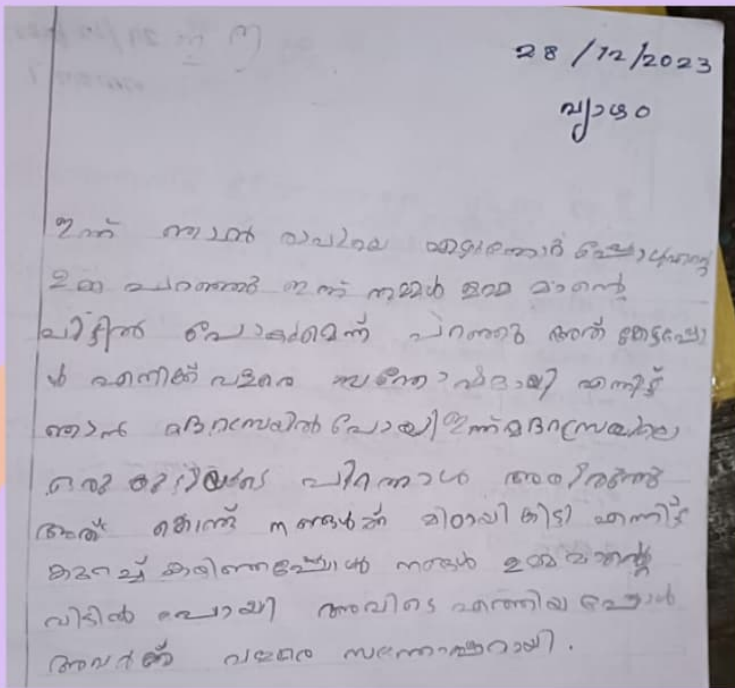 28/12/2023
വ്യാഴം
ഇന്ന് ഞാൻ രാവിലെ എഴുന്നേൽ പ്പോൾ എന്റെ
ഉമ്മ പറഞ്ഞു ഇന്ന് നമ്മൾ ഉമ്മ മാന്റെ
വീട്ടിൽ പോകുമെന്ന് പറഞ്ഞു അത് കേട്ടപ്പോ
ൾ എനിക്ക് വളരെ സന്തോഷമായി എന്നിട്ട്
ഞാൻ മദ്റസയിൽ പോയി ഇന്ന് മദ്റസയിലെ
ഒരു കുട്ടിയുടെ പിറന്നാൾ ആയിരുന്നു
അത് കൊണ്ട് ഞങ്ങൾക്ക് മിഠായി കിട്ടി എന്നിട്ട്
കുറച്ച് കഴിഞ്ഞപ്പോൾ ഞങ്ങൾ ഉമ്മ മാന്റെ
വീടിൽ പോയി അവിടെ എത്തിയ പ്പോൾ
അവർക്ക് വളരെ സന്തോഷമായി.